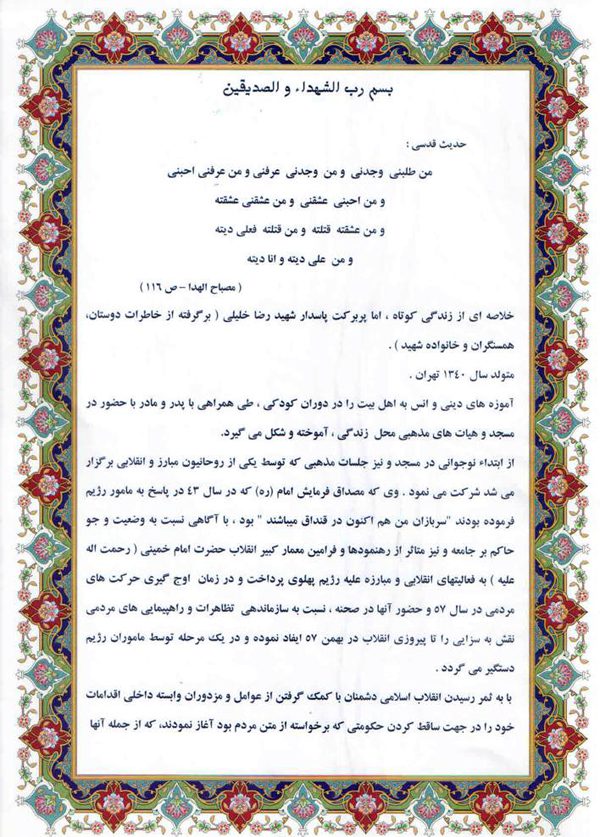 بسم رب الشهداء و الصدیقین
حدیث قدسی :
من طلبنی وجدنی و من وجدنی عرفنی و من عرفنی احبنی
و من احبنی عشقنی و من عشقنی عشقته
و من عشقته قتلته و من قتلته فعلی دیته
و من علی دیته و انا دیته
( مصباح الهدا – ص ١١٦ )
خلاصه ای از زندگی کوتاه ، اما پربرکت پاسدار شهید رضا خلیلی ( برگرفته از خاطرات دوستان،
همسنگران و خانواده شهید ) .
متولد سال ١٣٤٠ تهران .
آموزه های دینی و انس به اهل بیت را در دوران کودکی ، طی همراهی با پدر و مادر با حضور در
مسجد و هیات های مذهبی محل زندگی ، آموخته و شکل می گیرد.
از ابتداء نوجوانی در مسجد و نیز جلسات مذهبی که توسط یکی از روحانیون مبارز و انقلابی برگزار
می شد شرکت می نمود . وی که مصداق فرمایش امام (ره) که در سال ٤٣ در پاسخ به مامور رژیم
فرموده بودند "سربازان من هم اکنون در قنداق میباشند " بود ، با آگاهی نسبت به وضعیت و جو
حاکم بر جامعه و نیز متاثر از رهنمودها و فرامین معمار کبیر انقلاب حضرت امام خمینی ( رحمت اله
علیه ) به فعالیتهای انقلابی و مبارزه علیه رژیم پهلوی پرداخت و در زمان اوج گیری حرکت های
مردمی در سال ٥٧ و حضور آنها در صحنه ، نسبت به سازماندهی تظاهرات و راهپیمایی های مردمی
نقش به سزایی را تا پیروزی انقلاب در بهمن ٥٧ ایفاد نموده و در یک مرحله توسط ماموران رژیم
دستگیر می گردد .
با به ثمر رسیدن انقلاب اسلامی دشمنان با کمک گرفتن از عوامل و مزدوران وابسته داخلی اقدامات
خود را در جهت ساقط کردن حکومتی که برخواسته از متن مردم بود آغاز نمودند، که از جمله آنها